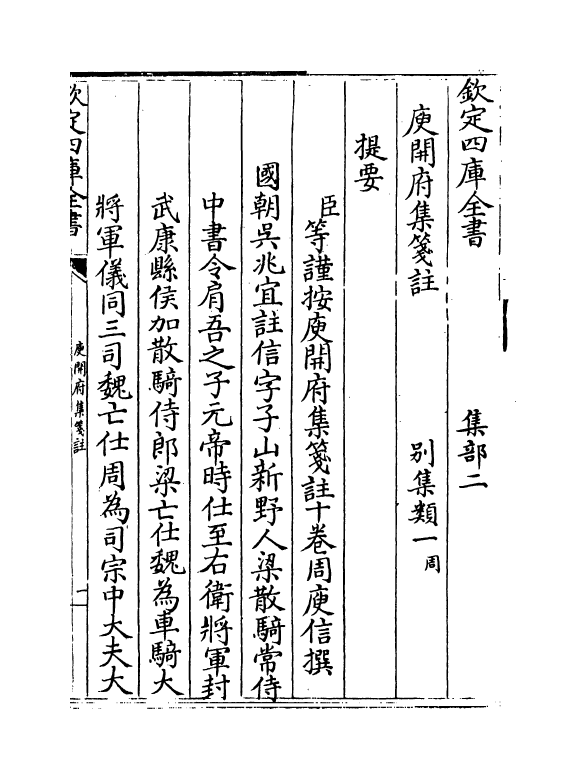 欽定四庫全書 集部二
庾開府集箋註 別集類一周
提要
臣等謹按庾開府集箋註十卷周庾信撰
國朝吳兆宜註信字子山新野人梁散騎常侍
中書令肩吾之子元帝時仕至右衛將軍封
武康縣侯加散騎侍郎梁亡仕魏為車騎大
將軍儀同三司魏亡仕周為司宗中大夫大
欽定四庫全書
庾開府集箋註
一